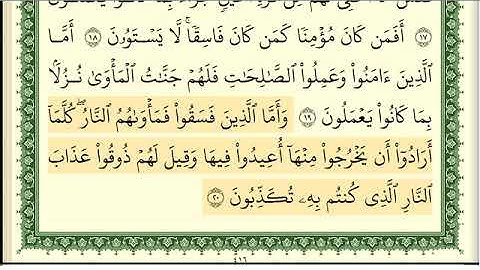 أَفَمَن كَانَ مُؤْمِنًا كَمَن كَانَ فَاسِقًا ۚ لَّا يَسْتَوُۥنَ ١٨ أَمَّا
ٱلَّذِينَ ءَامَنُوا۟ وَعَمِلُوا۟ ٱلصَّـٰلِحَـٰتِ فَلَهُمْ جَنَّـٰتُ ٱلْمَأْوَىٰ نُزُلًۢا
بِمَا كَانُوا۟ يَعْمَلُونَ ١٩ وَأَمَّا ٱلَّذِينَ فَسَقُوا۟ فَمَأْوَىٰهُمُ ٱلنَّارُ ۖ كُلَّمَآ
أَرَادُوٓا۟ أَن يَخْرُجُوا۟ مِنْهَآ أُعِيدُوا۟ فِيهَا وَقِيلَ لَهُمْ ذُوقُوا۟ عَذَابَ
ٱلنَّارِ ٱلَّذِى كُنتُم بِهِۦ تُكَذِّبُونَ ٢٠
٤١٦